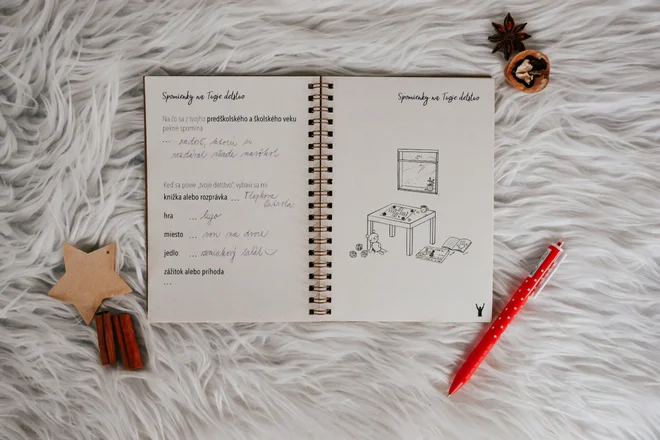 Spomienky na Tvoje detstvo
Na čo sa z tvojho predškolského a školského veku
pekne spomína
... radosť, ktorú si
rozdával všade navôkol
Keď sa povie „tvoje detstvo", vybaví sa mi
knižka alebo rozprávka ...
hra ... lego
miesto ... von na dvore
jedlo ... zemiakový šalát
zážitok alebo príhoda
...
Spomienky na Tvoje detstvo